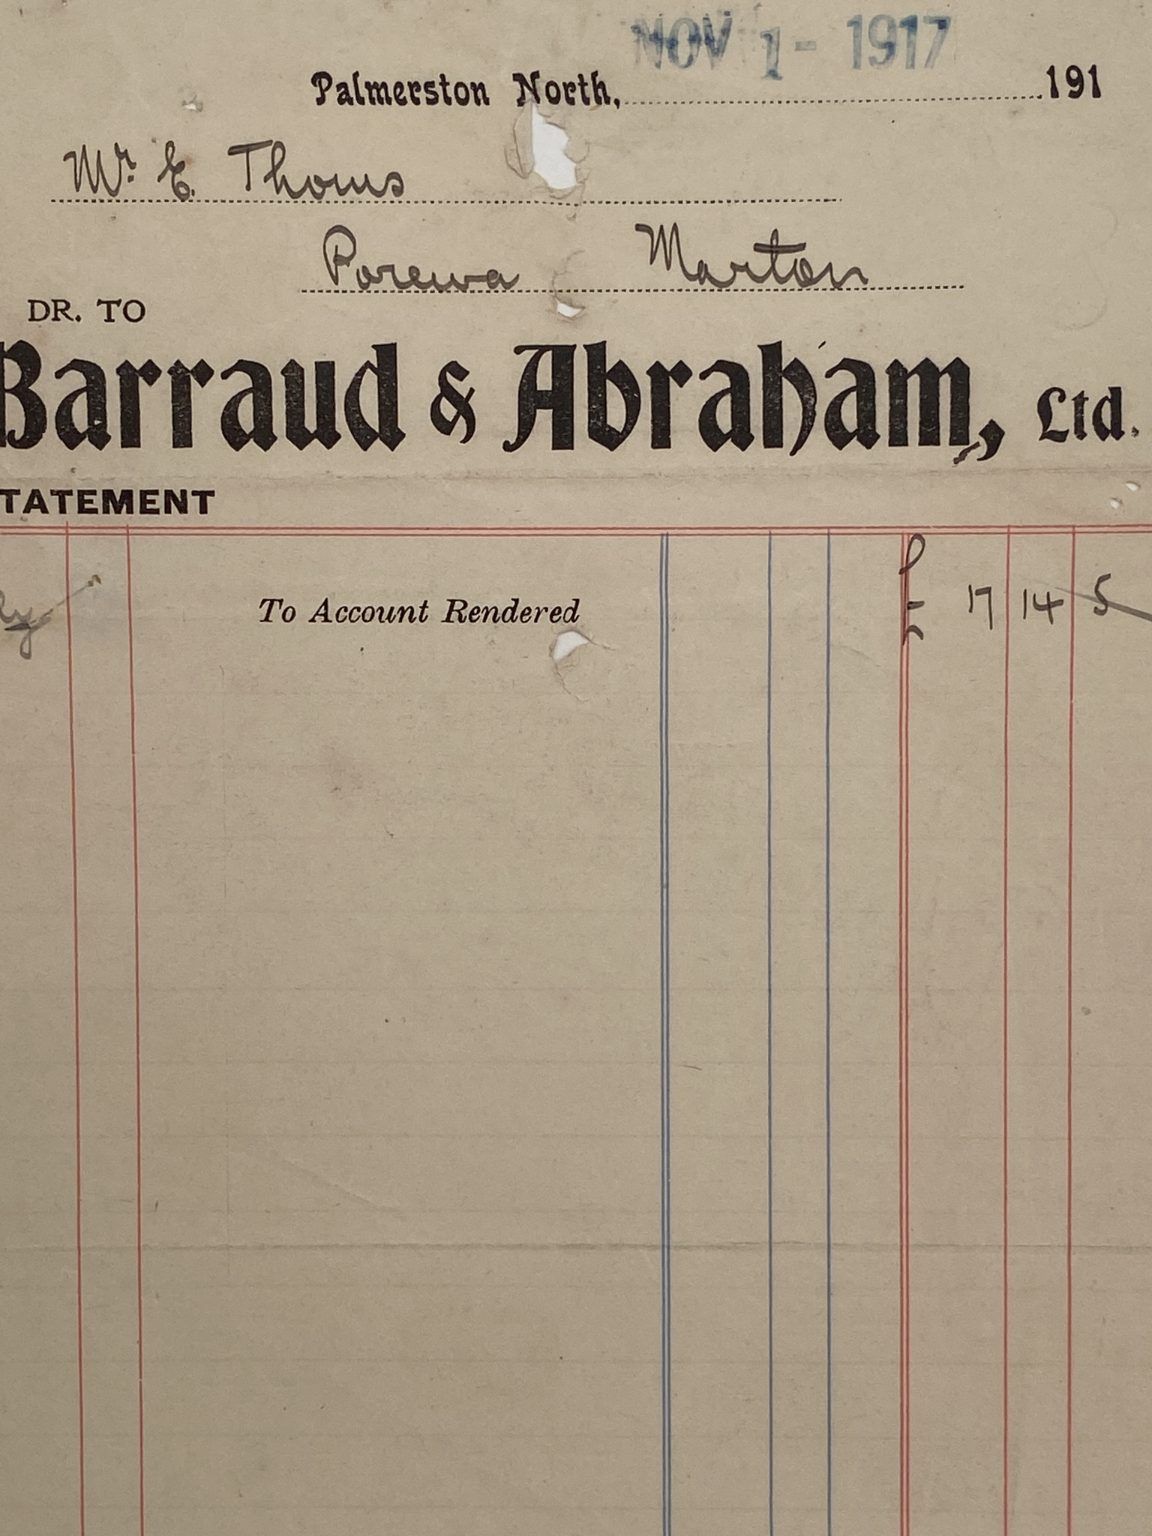 NOV 1 - 1917
Palmerston North, 191
Mr. E. Thoms
Porewa Marton
DR. TO
Barraud & Abraham, Ltd.
TATEMENT
ly To Account Rendered £ 17 14 5